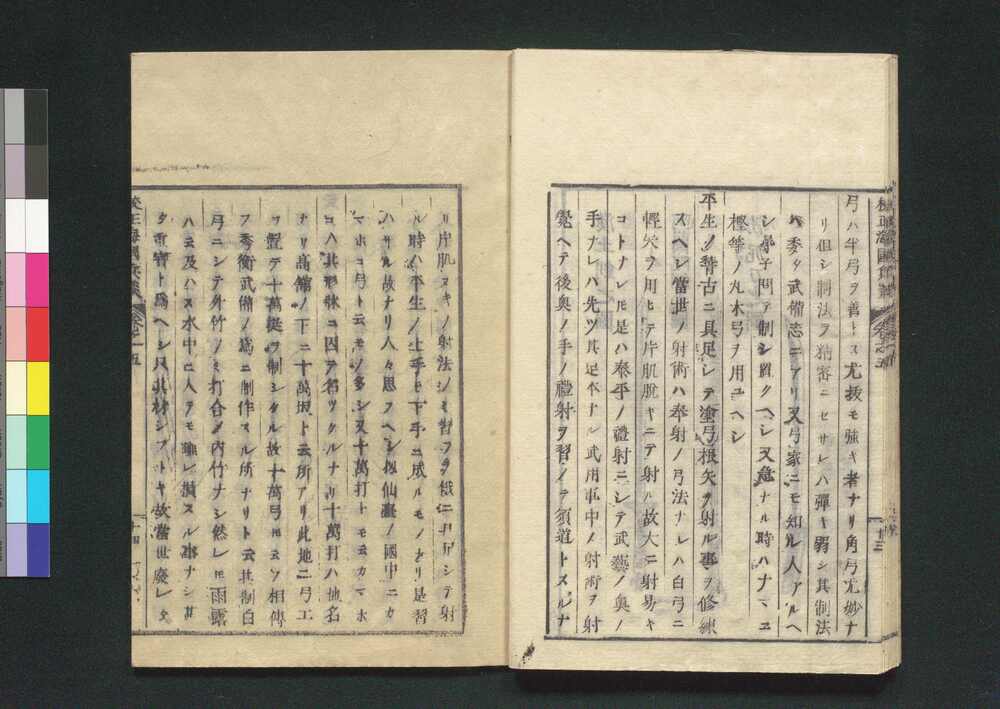 弓ハ半弓ヲ善トス尤扱モ強キ者ナリ角弓尤妙ナ
リ但シ制法ヲ精密ニセサレハ彈キ弱シ其制法
ハ委ク武備志ニアリ又弓家ニモ知ル人アルヘ
シ 問ア制シ置クヘシ又急ナル時ハナマエ
樫等ノ丸木弓ヲ用ユヘシ
平生ノ稽古ニ具足シテ塗弓根矢ヲ射ル事ヲ修練
スヘシ當世ノ射術ハ奉射ノ弓法ナレハ白弓ニ
輕矢ヲ用ヒテ片肌脱キニテ射ル故大ニ射易キ
コトナレ𪜈是ハ泰平ノ禮射ニシテ武藝ノ奥ノ
手ナレハ先ツ其足本ナル武用軍中ノ射術ヲ射
覺ヘテ後奥ノ手ノ禮射ヲ習ノヲ須道トスルナ
十三
リ片肌ヌキノ射法ノミ習フヲ俄ニ具足シテ射
ル時ハ平生ノ上手モ下手ニ成ルモノナリ是習
ハサル故ナリ人々思フヘシ扨仙臺ノ國中ニカ
マホコ弓ト云モノ多シ又十萬打トモ云カマホ
コハ其形状ニ因テ名ツクルナリ十萬打ハ地名
ナリ高館ノ下ニ十萬坂ト云所アリ此地ニ弓工
ヲ置テ十萬挺ヲ制シタル故十萬弓ト云ソ相傳
フ秀衡武備ノ爲ニ制作スル所ナリト云其制白
弓ニシテ外竹ノミ打合メ内竹ナシ然レ𪜈雨露
ハ云及ハス水中ニ入ラモ離レ損スル事ナシ甚
タ重寶ト爲ヘシ只其材シブトキ故當世廢レタ
十四